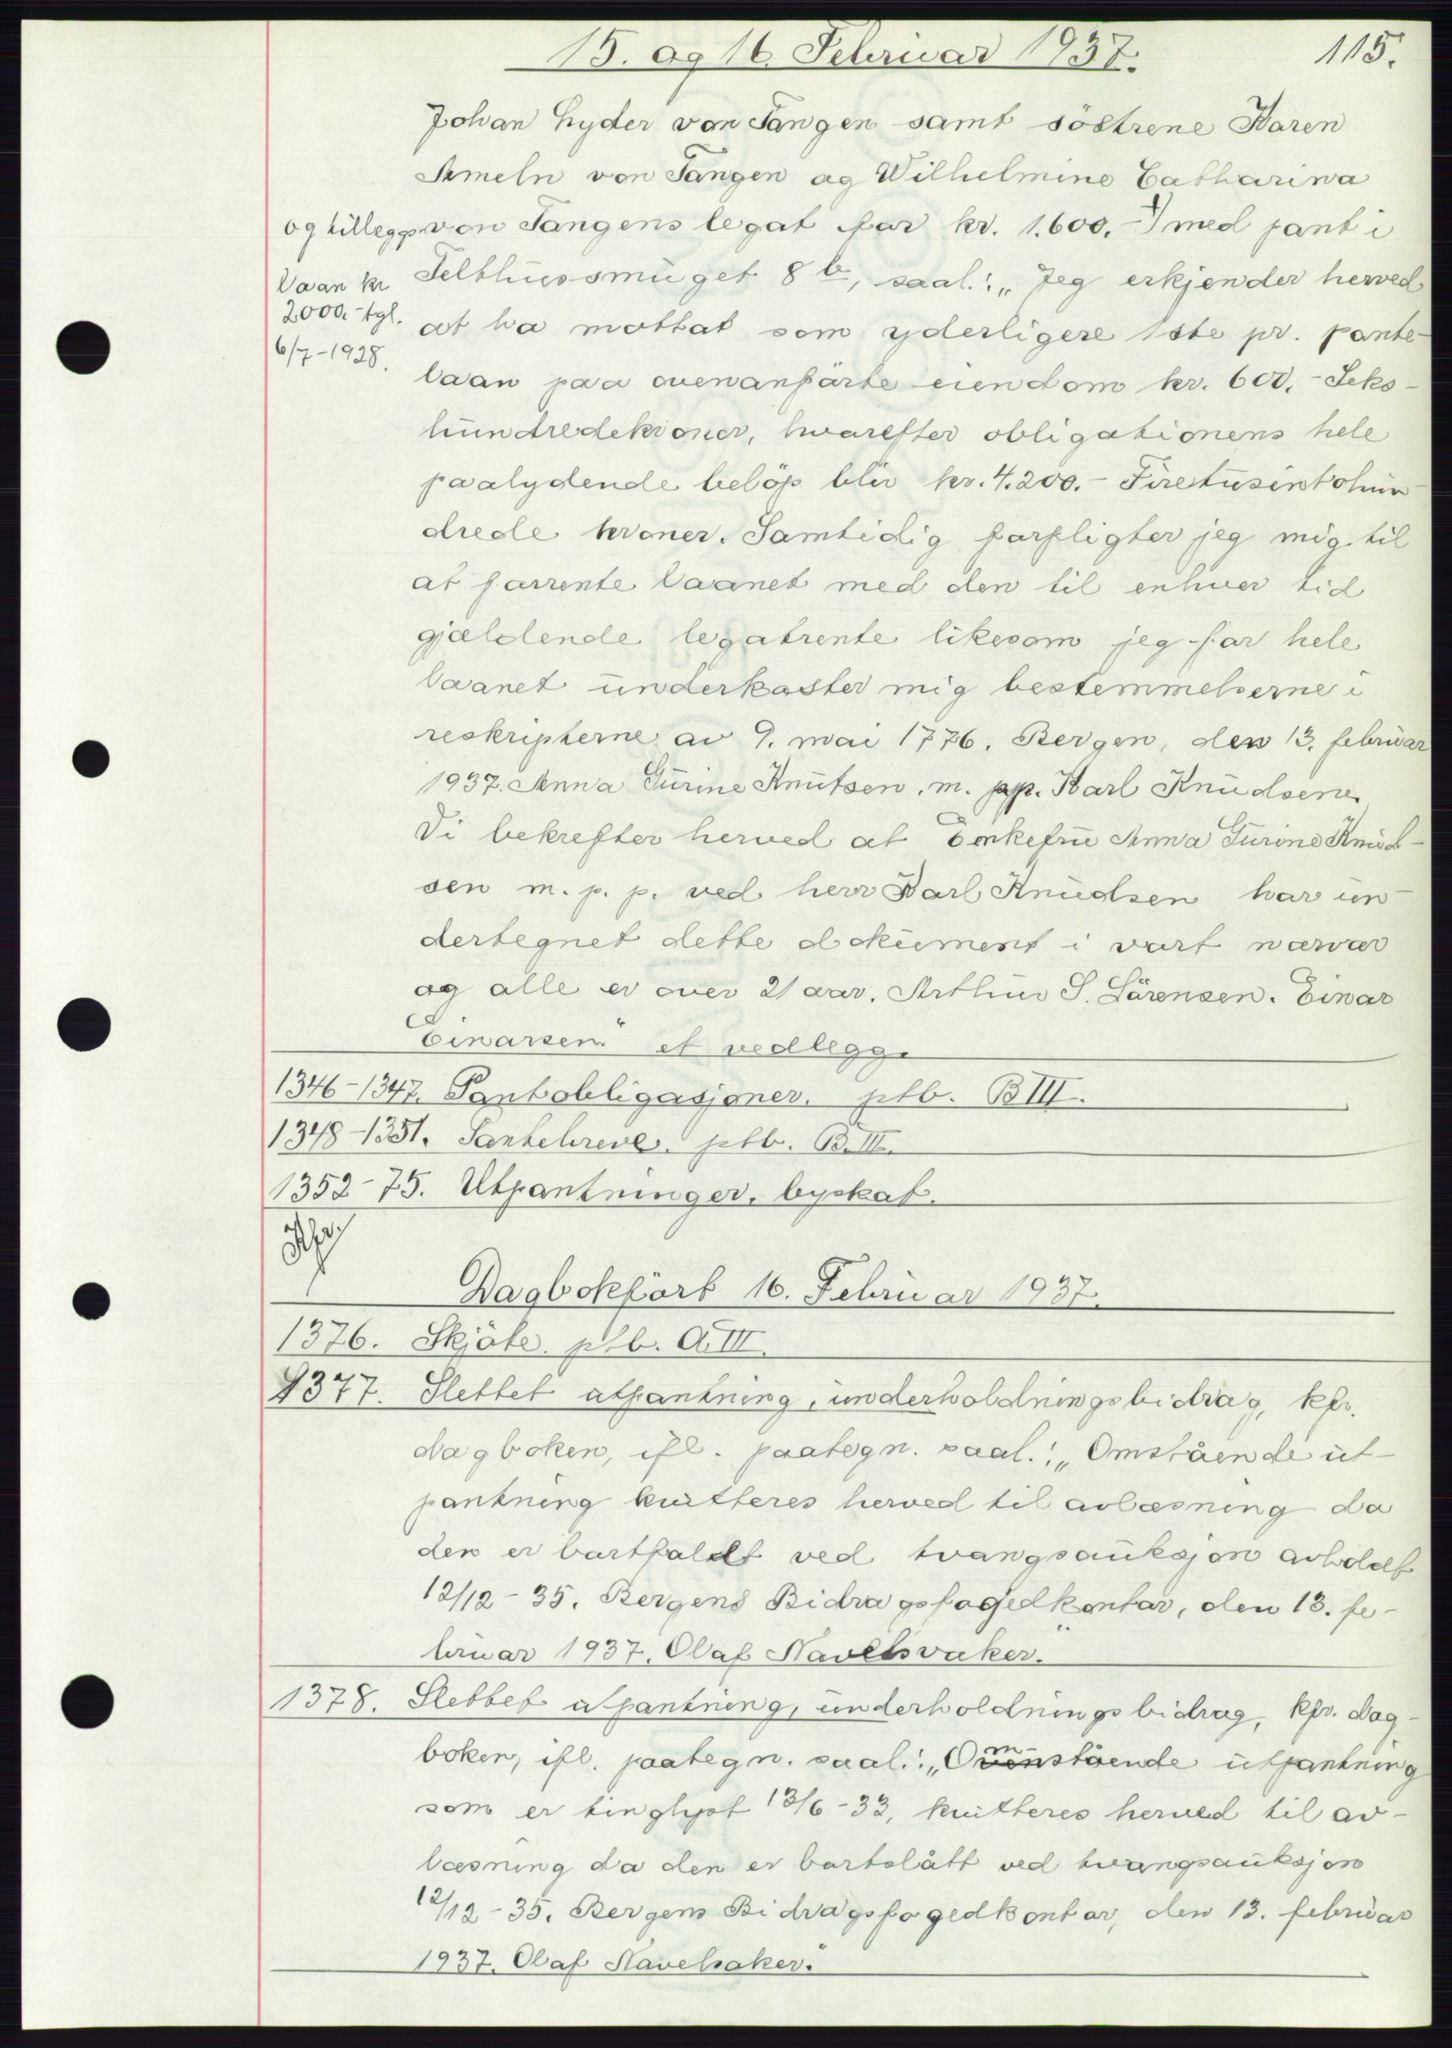 15. og 16 Februar 1937. 115.
Johan Lyder von Tangen samt söstrene Karen
Ameln von Tangen og Wilhelmine Catharina
von Tangens legat for kr. 1.600.-) med pant i
og tillegg
Laan kr
2000.- tgl.
6/7-1928.
Telthussmuget 8 b, saal.: „Jeg erkjender herved
at ha mottat som yderligere 1ste pr. pante-
laan paa ovenanförte eiendom kr. 600.- Seks-
hundredekroner, hvorefter obligationens hele
paalydende belöp blir kr. 4.200.- Firetusintohun-
drede kroner. Samtidig forpligter jeg mig til
at forrente laanet med den til enhver tid
gjældende legatrente likesom jeg for hele
laanet underkaster mig bestemmelserne i
reskripterne av 9. mai 1776. Bergen, den 13. februar
1937. Anna Gurine Knutsen. m. pp. Karl Knudsen.
Vi bekrefter herved at Enkefru Anna Gurine Knud-
sen m. p. p. ved herr Karl Knudsen har un-
dertegnet dette dokument i vort nærvær
og alle er over 21 aar. Arthur S. Sörensen. Einar
Einarsen." et vedlegg.
1346-1347. Pantobligasjoner. ptb. B III.
1348-1351. Pantebreve. ptb. B. III.
1352-75. Utpantninger, byskat.
Dagbokfört 16. Februar 1937.
1376. Skjöte. ptb. A. III.
1377. Slettet utpantning, underholdningsbidrag, kfr.
dagboken, ifl. paategn. saal.: „Omstående ut-
pantning kvitteres herved til avlæsning da
den er bortfaldt ved tvangsauksjon avholdt
12/12-35. Bergens Bidragsfogedkontor, den 13. fe-
bruar 1937. Olaf Navelsaker."
1378. Slettet utpantning, underholdningsbidrag, kfr. dag-
boken, ifl. paategn. saal.: „Omstående utpantning
som er tinglyst 13/6-33, kvitteres herved til av-
læsning da den er bortslått ved tvangsauksjon
12/12-35. Bergens Bidragsfogedkontor, den 13. februar
1937. Olaf Navelsaker."